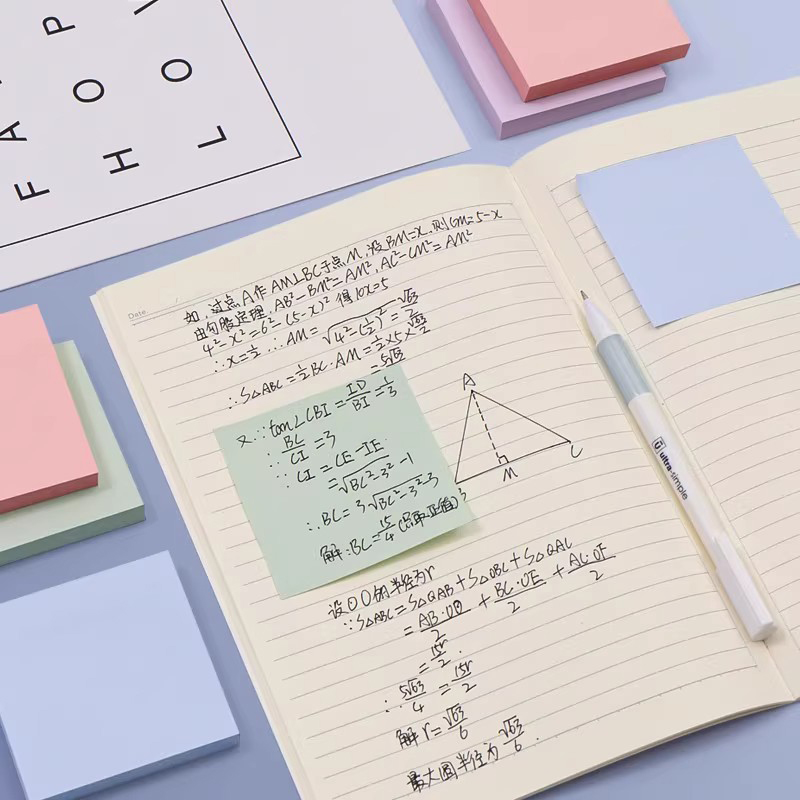 P
A O V
F H L O
Date
如，过点A作AM⊥BC于点M，设BM=x，则CM=5-x
由勾股定理，AB²-BM²=AM²，AC²-CM²=AM²
4²-x²=6²-(5-x)² 得10x=5
∴x=1/2 ∴AM=√(4²-(1/2)²)=√63/2
∴S△ABC=1/2BC·AM=1/2×5×√63/2
=5√63
又∵tan∠CBI=ID/BI=1/3
∴BC/CI=3
∴CI=CE-IE
=√BC²-3²-1
∴BC=3√BC²-3²-3
解:BC=15/4(只取正值)
A
M
C
设⊙O的半径为r
∵S△ABC=S△OAB+S△OBC+S△OAC
=AB·OD/2+BC·OE/2+AC·OF/2
=15r/2.
∴5√63/4=15r/2
解r=√63/6
最大圆半径为√63/6.
ultra·simple